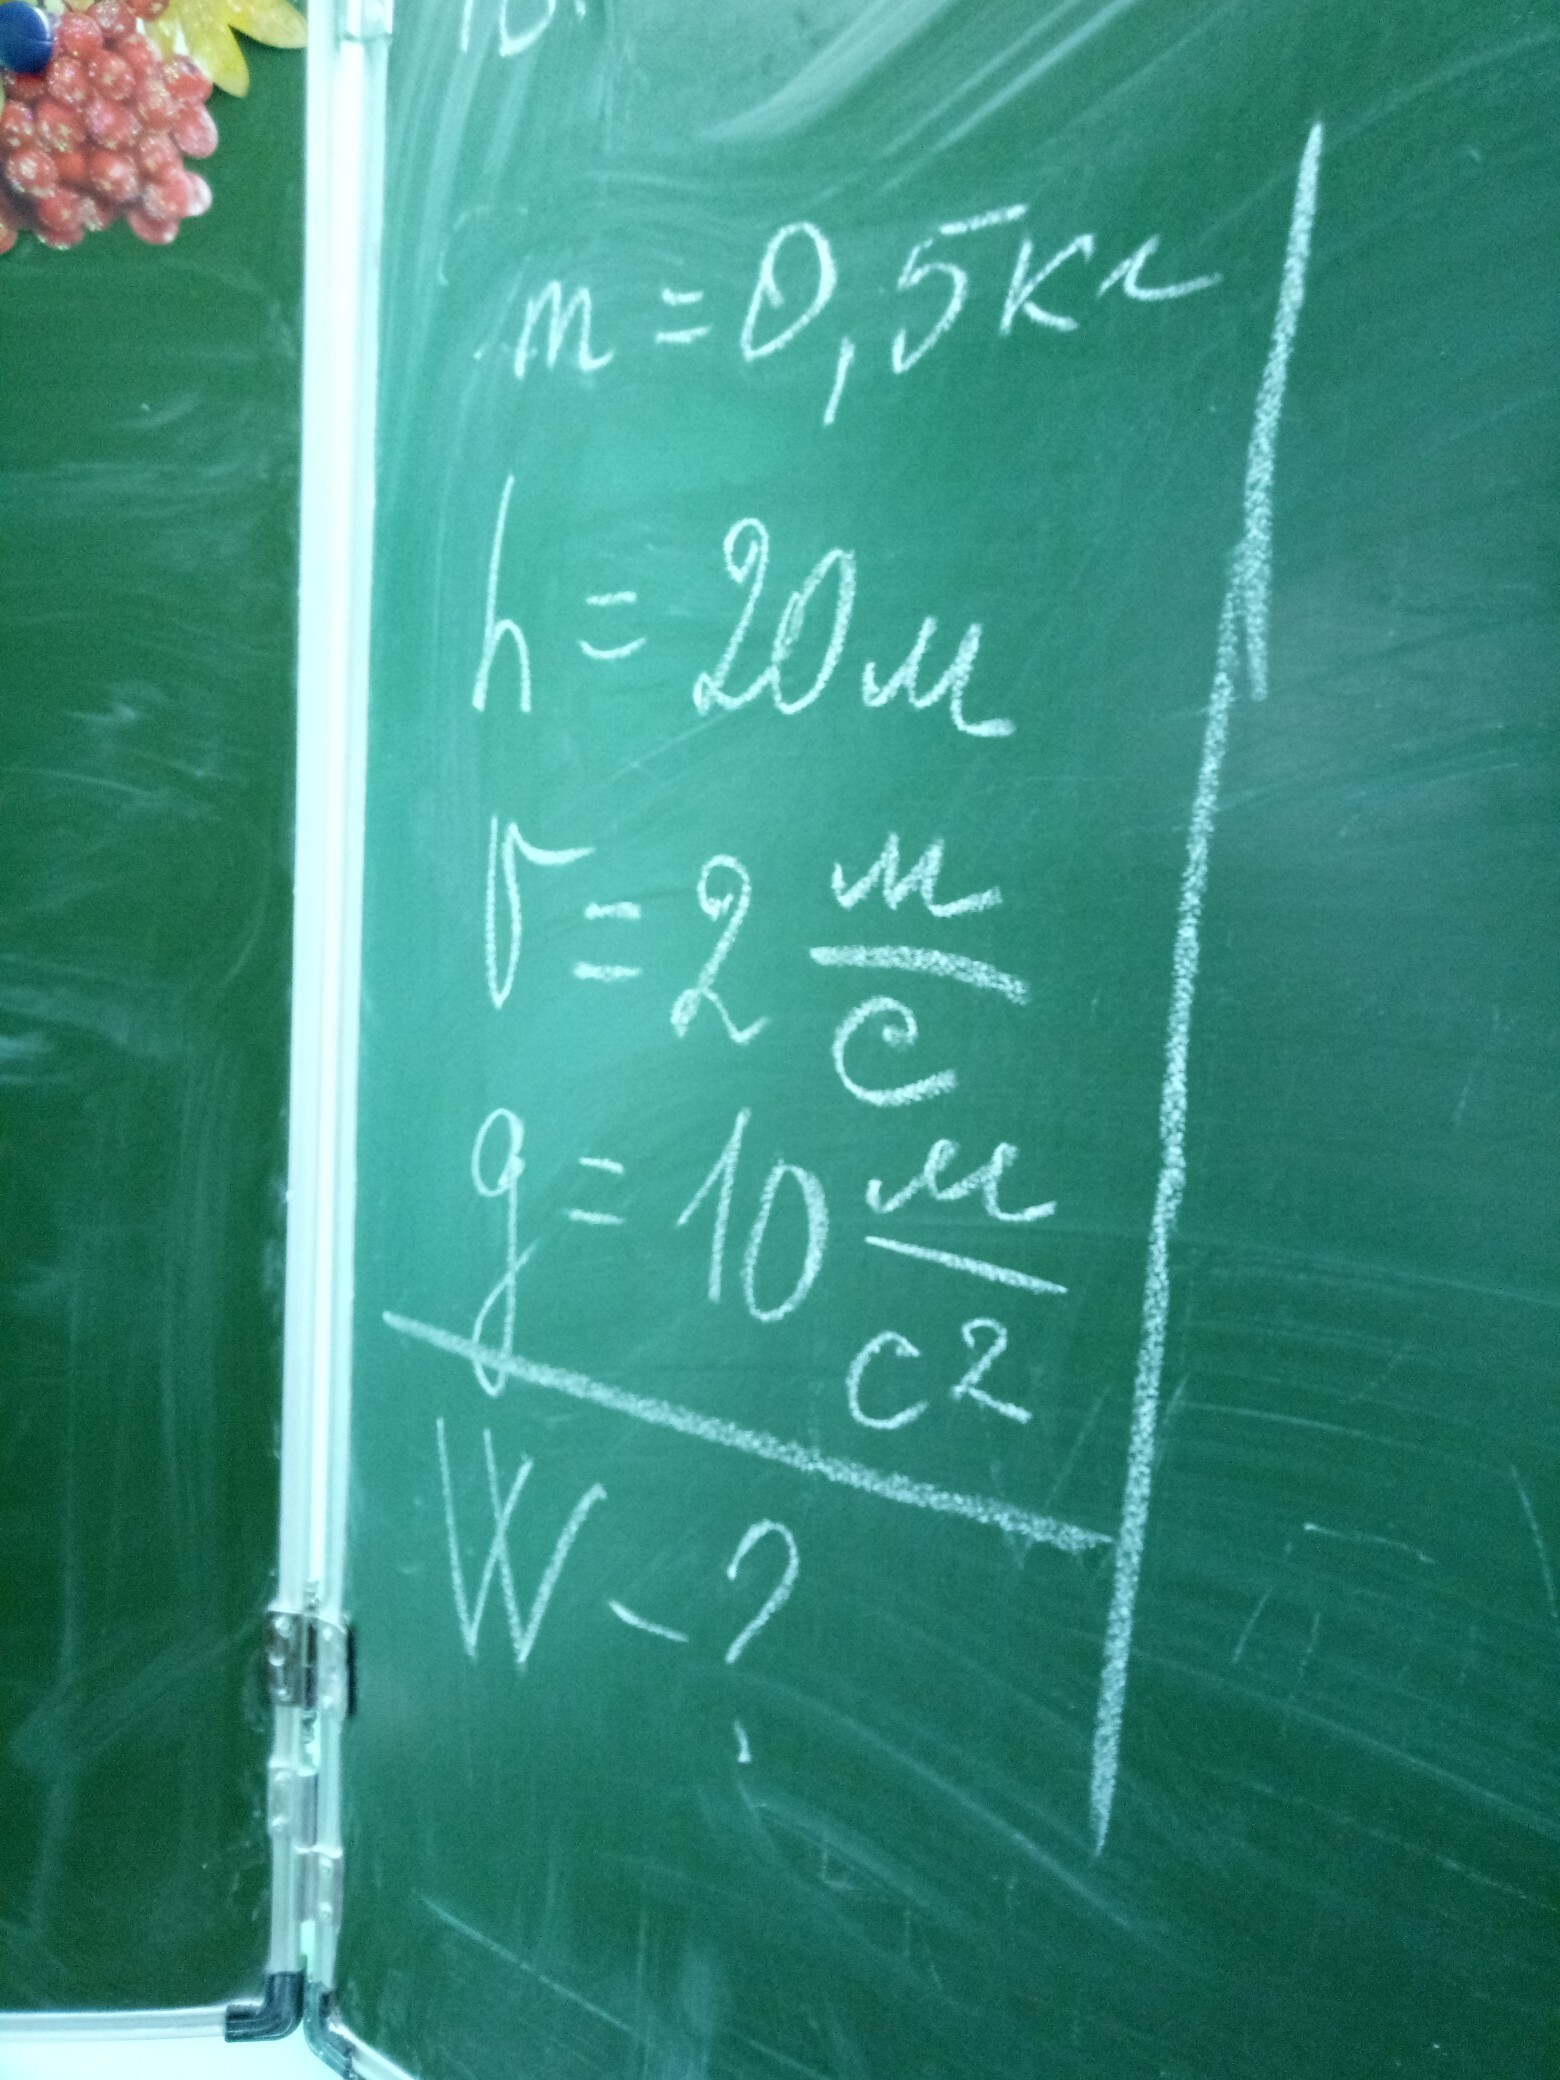 m = 0,5 кг
h = 20 м
v = 2 м/с
g = 10 м/с²
W - ?